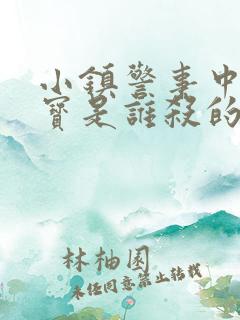 小鎮警事中
寶是誰殺的
林柚園
未经同意禁止转载